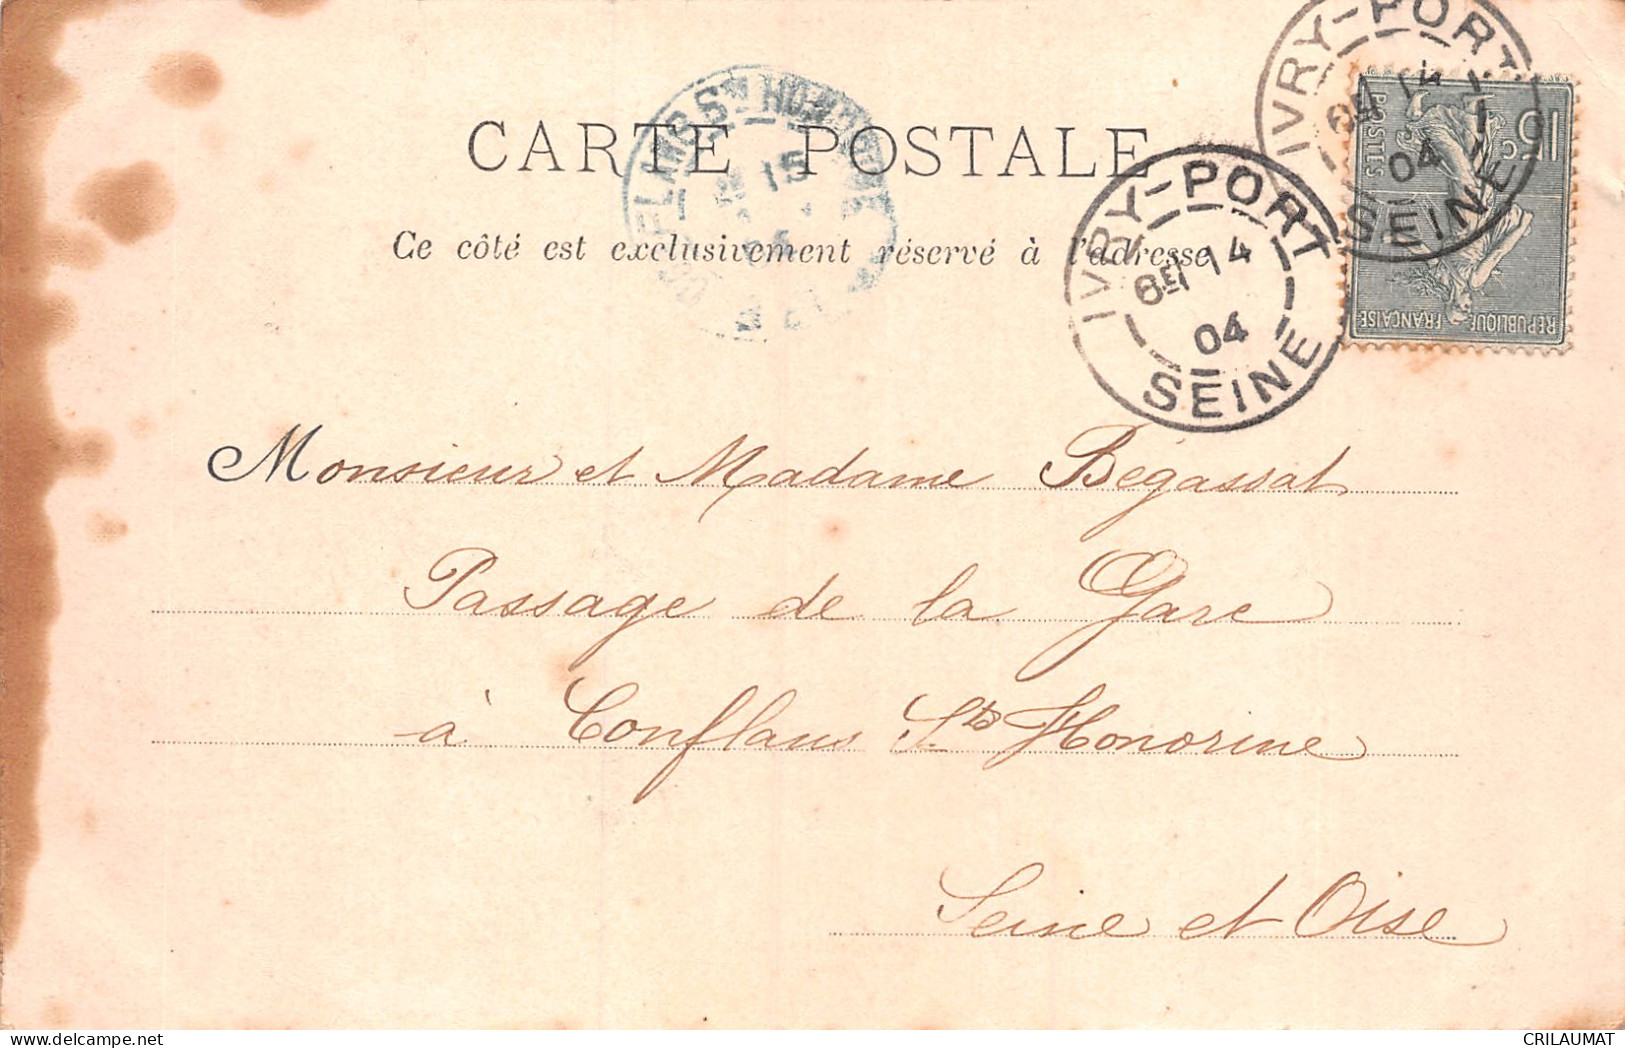 CARTE POSTALE
Ce côté est exclusivement réservé à l'adresse
IVRY-PORT
6E 14
04
SEINE
IVRY-PORT
6E 14
04
SEINE
15c
POSTES
REPUBLIQUE FRANÇAISE
15
Monsieur et Madame Bégassat
Passage de la Gare
à Conflans Ste Honorine
Seine et Oise
CRILAUMAT